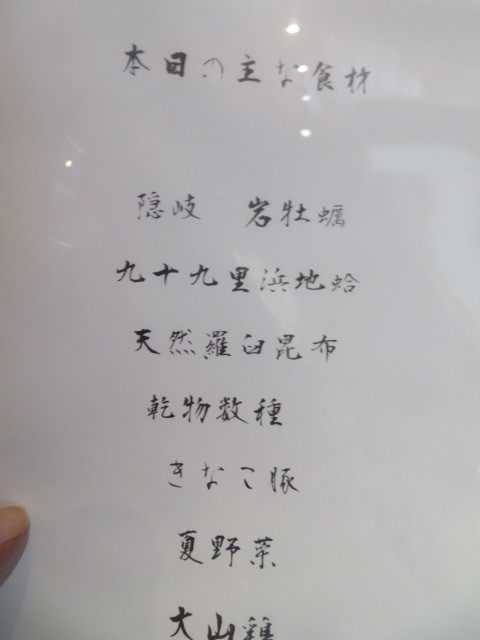 本日の主な食材
隠岐　岩牡蠣
九十九里浜地蛤
天然羅臼昆布
乾物数種
きなこ豚
夏野菜
大山鶏